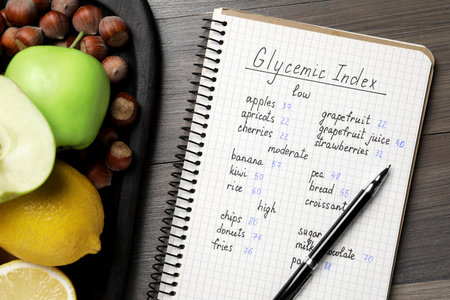 Glycemic Index
low
apples 37
apricots 22
cherries 22
grapefruit 22
grapefruit juice 40
strawberries 32
moderate
banana 57
kiwi 50
rice 60
pea 48
bread 55
croissant
high
chips 80
donuts 76
fries 76
sugar
chocolate 70
88